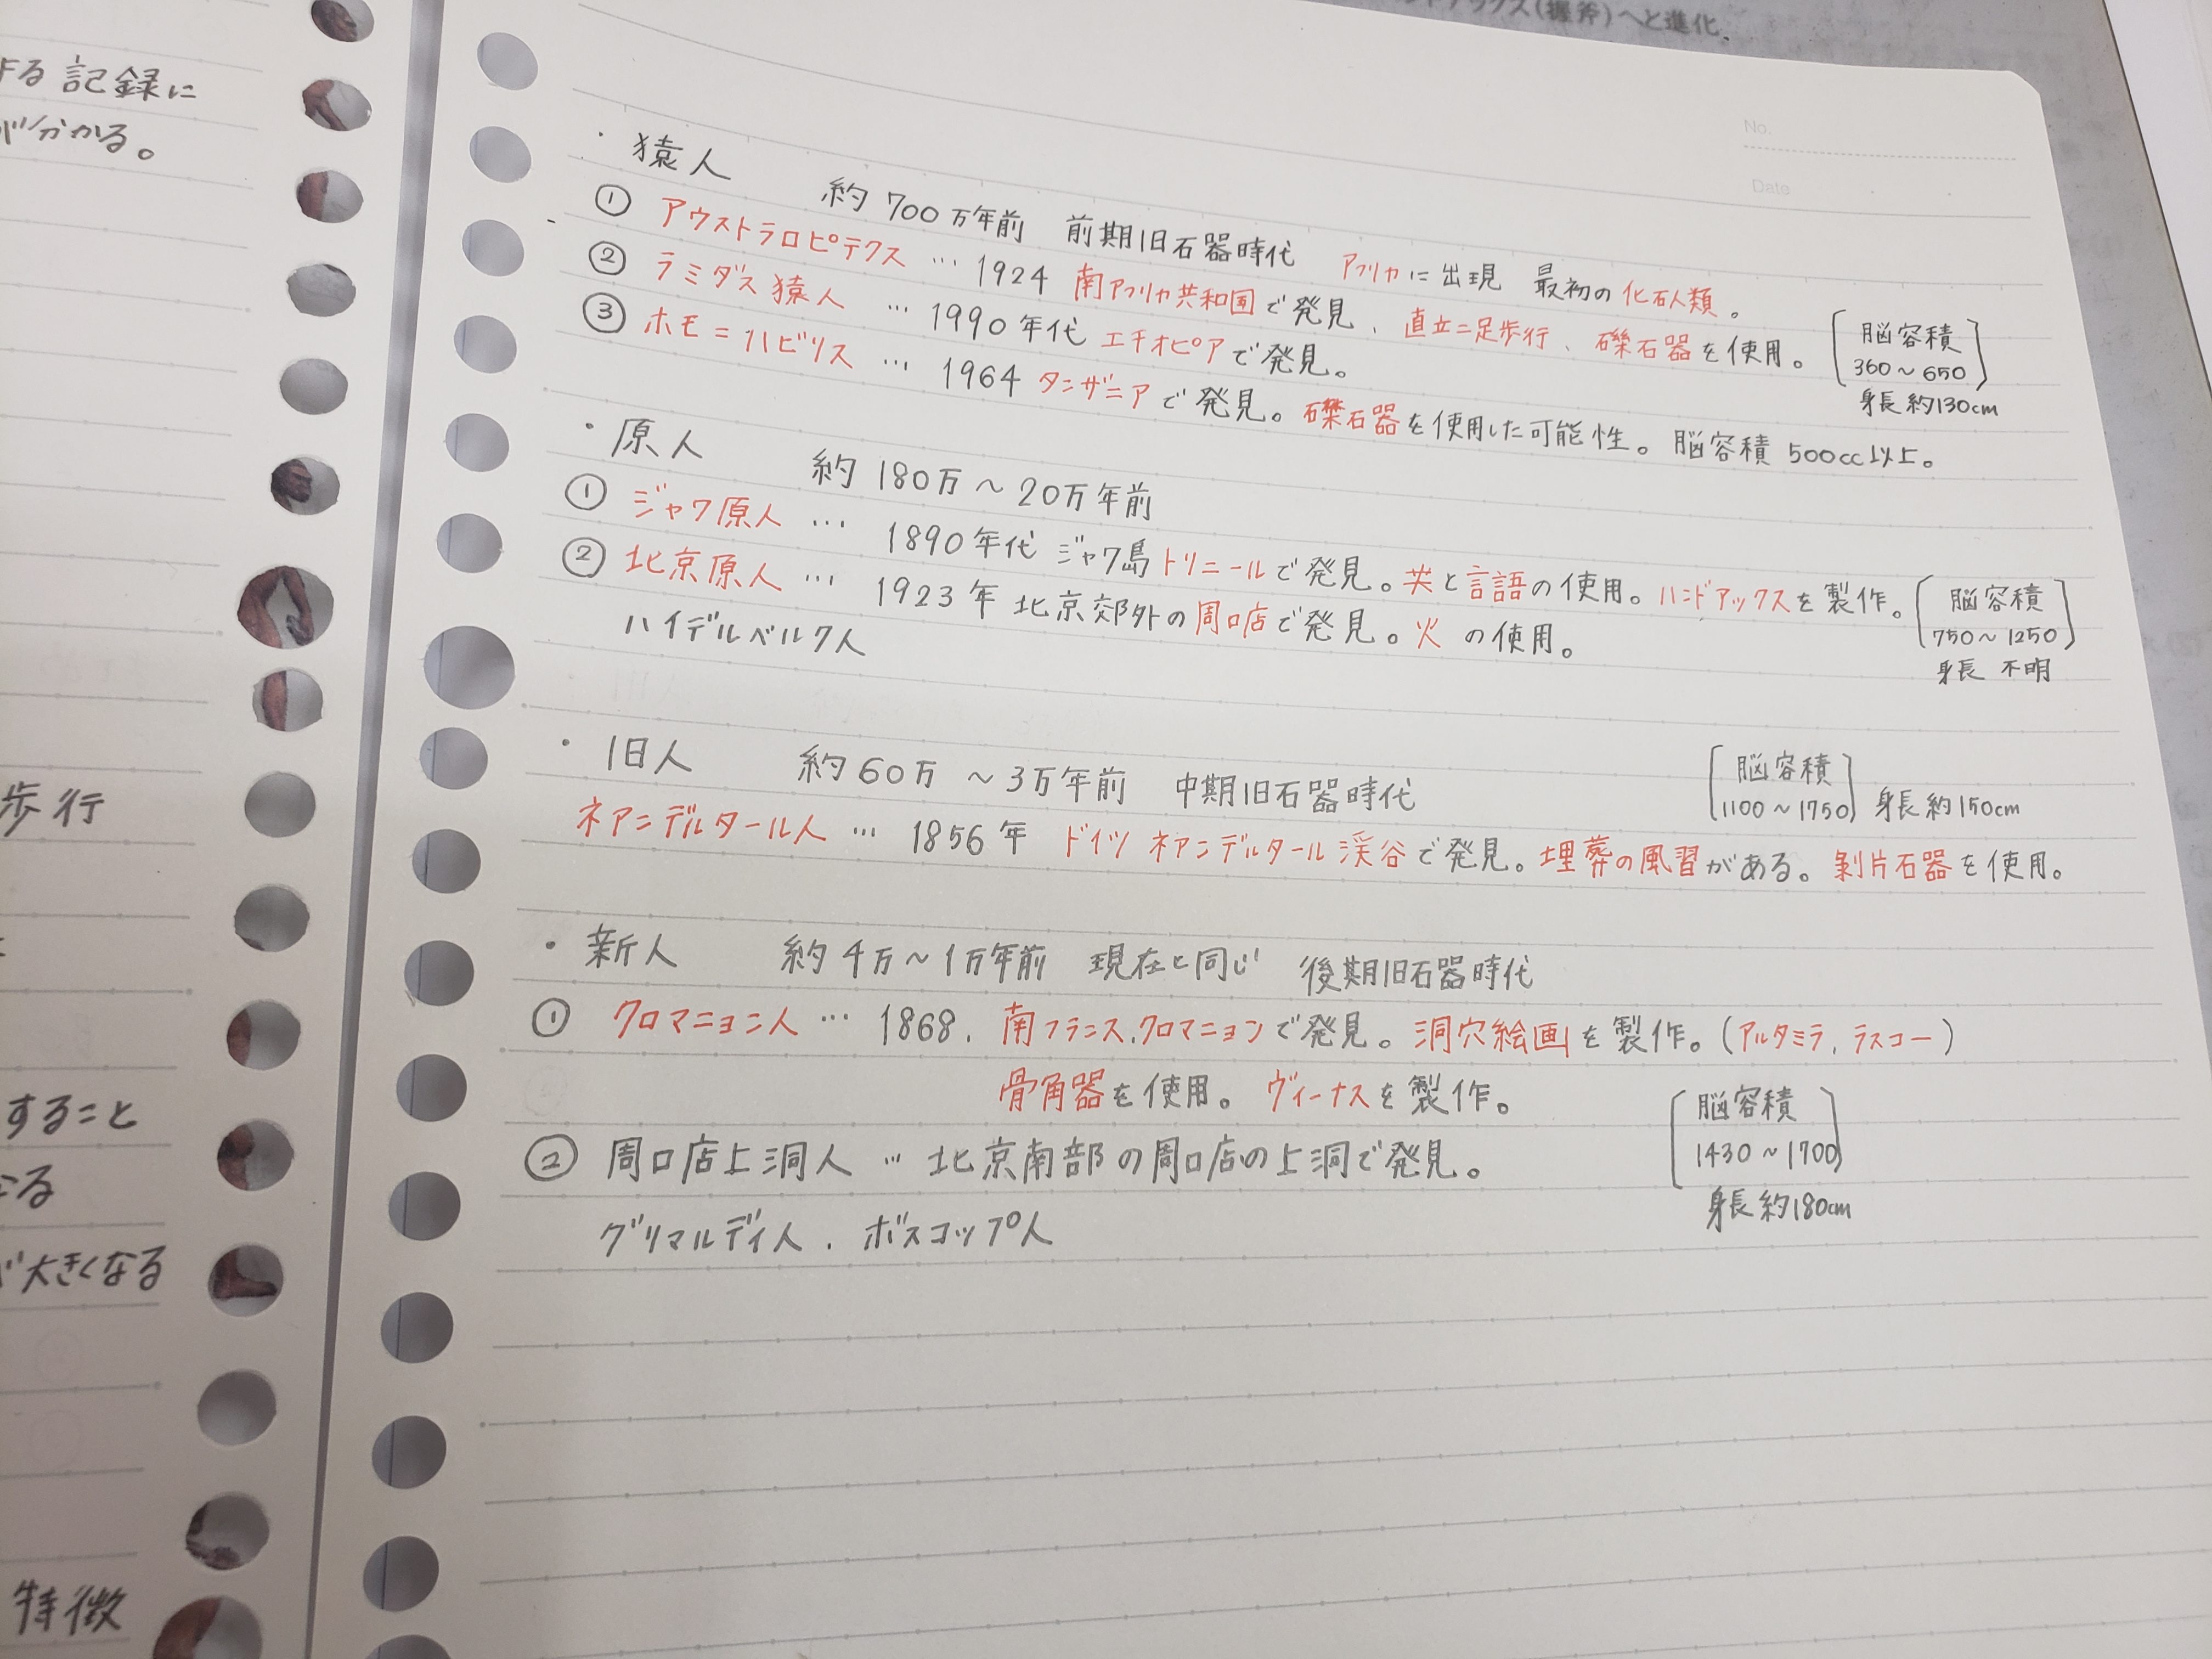 ックス(握斧)へと進化.
る記録に
分かる。
歩行
すること
る
大きくなる
特徴
No.
Date
・猿人 約700万年前 前期旧石器時代 アフリカに出現 最初の化石人類。
① アウストラロピテクス … 1924 南アフリカ共和国で発見、直立二足歩行、礫石器を使用。
[脳容積
360～650]
身長約130cm
② ラミダス猿人 … 1990年代 エチオピアで発見。
③ ホモ=ハビリス … 1964 タンザニアで発見。礫石器を使用した可能性。脳容積 500cc以上。
・原人 約180万～20万年前
① ジャワ原人 … 1890年代 ジャワ島トリニールで発見。と言語の使用。ハンドアックスを製作。
[脳容積
750～1250]
身長 不明
② 北京原人 … 1923年 北京郊外の周口店で発見。火の使用。
ハイデルベルク人
・旧人 約60万～3万年前 中期旧石器時代
[脳容積
1100～1750] 身長約150cm
ネアンデルタール人 … 1856年 ドイツ ネアンデルタール渓谷で発見。埋葬の風習がある。剝片石器を使用。
・新人 約4万～1万年前 現在と同じ 後期旧石器時代
① クロマニョン人 … 1868. 南フランス.クロマニョンで発見。洞穴絵画を製作。(アルタミラ, ラスコー)
骨角器を使用。ヴィーナスを製作。
[脳容積
1430～1700]
身長約180cm
② 周口店上洞人 … 北京南部の周口店の上洞で発見。
グリマルディ人. ボスコップ人